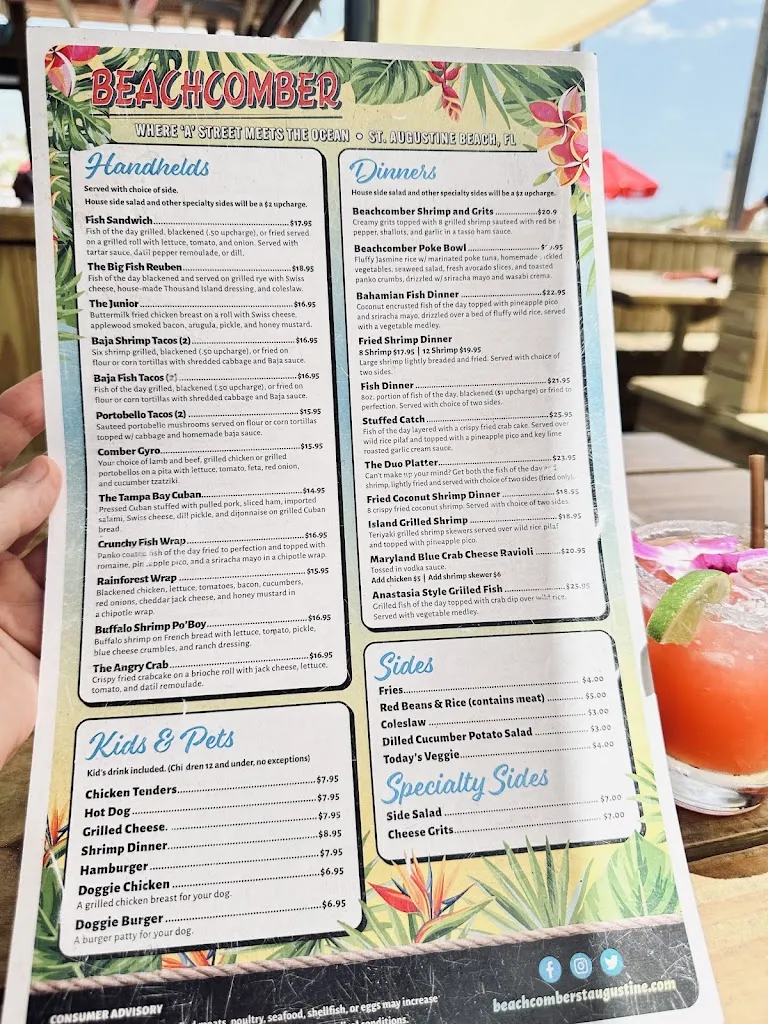 BEACHCOMBER
WHERE 'A' STREET MEETS THE OCEAN • ST. AUGUSTINE BEACH, FL
Handhelds
Served with choice of side.
House side salad and other specialty sides will be a $2 upcharge.
Fish Sandwich $17.95
Fish of the day grilled, blackened (.50 upcharge), or fried served
on a grilled roll with lettuce, tomato, and onion. Served with
tartar sauce, datil pepper remoulade, or dill.
The Big Fish Reuben $18.95
Fish of the day blackened and served on grilled rye with Swiss
cheese, house-made Thousand Island dressing, and coleslaw.
The Junior $16.95
Buttermilk fried chicken breast on a roll with Swiss cheese,
applewood smoked bacon, arugula, pickle, and honey mustard.
Baja Shrimp Tacos (2) $16.95
Six shrimp grilled, blackened (.50 upcharge), or fried on
flour or corn tortillas with shredded cabbage and Baja sauce.
Baja Fish Tacos (2) $16.95
Fish of the day grilled, blackened (.50 upcharge), or fried on
flour or corn tortillas with shredded cabbage and Baja sauce.
Portobello Tacos (2) $15.95
Sauteed portobello mushrooms served on flour or corn tortillas
topped w/ cabbage and homemade baja sauce.
Comber Gyro $15.95
Your choice of lamb and beef, grilled chicken or grilled
portobellos on a pita with lettuce, tomato, feta, red onion,
and cucumber tzatziki.
The Tampa Bay Cuban $14.95
Pressed Cuban stuffed with pulled pork, sliced ham, imported
salami, Swiss cheese, dill pickle, and dijonnaise on grilled Cuban
bread.
Crunchy Fish Wrap $16.95
Panko coated fish of the day fried to perfection and topped with
romaine, pineapple pico, and a sriracha mayo in a chipotle wrap.
Rainforest Wrap $15.95
Blackened chicken, lettuce, tomatoes, bacon, cucumbers,
red onions, cheddar jack cheese, and honey mustard in
a chipotle wrap.
Buffalo Shrimp Po'Boy $16.95
Buffalo shrimp on French bread with lettuce, tomato, pickle,
blue cheese crumbles, and ranch dressing.
The Angry Crab $16.95
Crispy fried crabcake on a brioche roll with jack cheese, lettuce,
tomato, and datil remoulade.
Kids & Pets
Kid's drink included. (Children 12 and under, no exceptions)
Chicken Tenders $7.95
Hot Dog $7.95
Grilled Cheese. $7.95
Shrimp Dinner $8.95
Hamburger $7.95
Doggie Chicken $6.95
A grilled chicken breast for your dog.
Doggie Burger $6.95
A burger patty for your dog.
Dinners
House side salad and other specialty sides will be a $2 upcharge.
Beachcomber Shrimp and Grits $20.9
Creamy grits topped with 8 grilled shrimp sauteed with red be
pepper, shallots, and garlic in a tasso ham sauce.
Beachcomber Poke Bowl .95
Fluffy Jasmine rice w/ marinated poke tuna, homemade pickled
vegetables, seaweed salad, fresh avocado slices, and toasted
panko crumbs, drizzled w/ sriracha mayo and wasabi crema.
Bahamian Fish Dinner $22.95
Coconut encrusted fish of the day topped with pineapple pico
and sriracha mayo, drizzled over a bed of fluffy wild rice, served
with a vegetable medley.
Fried Shrimp Dinner
8 Shrimp $17.95 | 12 Shrimp $19.95
Large shrimp lightly breaded and fried. Served with choice of
two sides.
Fish Dinner $21.95
8oz. portion of fish of the day, blackened ($1 upcharge) or fried to
perfection. Served with choice of two sides.
Stuffed Catch $25.95
Fish of the day layered with a crispy fried crab cake. Served over
wild rice pilaf and topped with a pineapple pico and key lime
roasted garlic cream sauce.
The Duo Platter $23.95
Can't make up your mind? Get both the fish of the day and
shrimp, lightly fried and served with choice of two sides (fried only).
Fried Coconut Shrimp Dinner $18.95
8 crispy fried coconut shrimp. Served with choice of two sides.
Island Grilled Shrimp $18.95
Teriyaki grilled shrimp skewers served over wild rice pilaf
and topped with pineapple pico.
Maryland Blue Crab Cheese Ravioli $20.95
Tossed in vodka sauce.
Add chicken $5 | Add shrimp skewer $6
Anastasia Style Grilled Fish $25.95
Grilled fish of the day topped with crab dip over wild rice.
Served with vegetable medley.
Sides
Fries $4.00
Red Beans & Rice (contains meat) $5.00
Coleslaw $3.00
Dilled Cucumber Potato Salad $3.00
Today's Veggie $4.00
Specialty Sides
Side Salad $7.00
Cheese Grits $7.00
CONSUMER ADVISORY
meats, poultry, seafood, shellfish, or eggs may increase
conditions.
beachcomberstaugustine.com